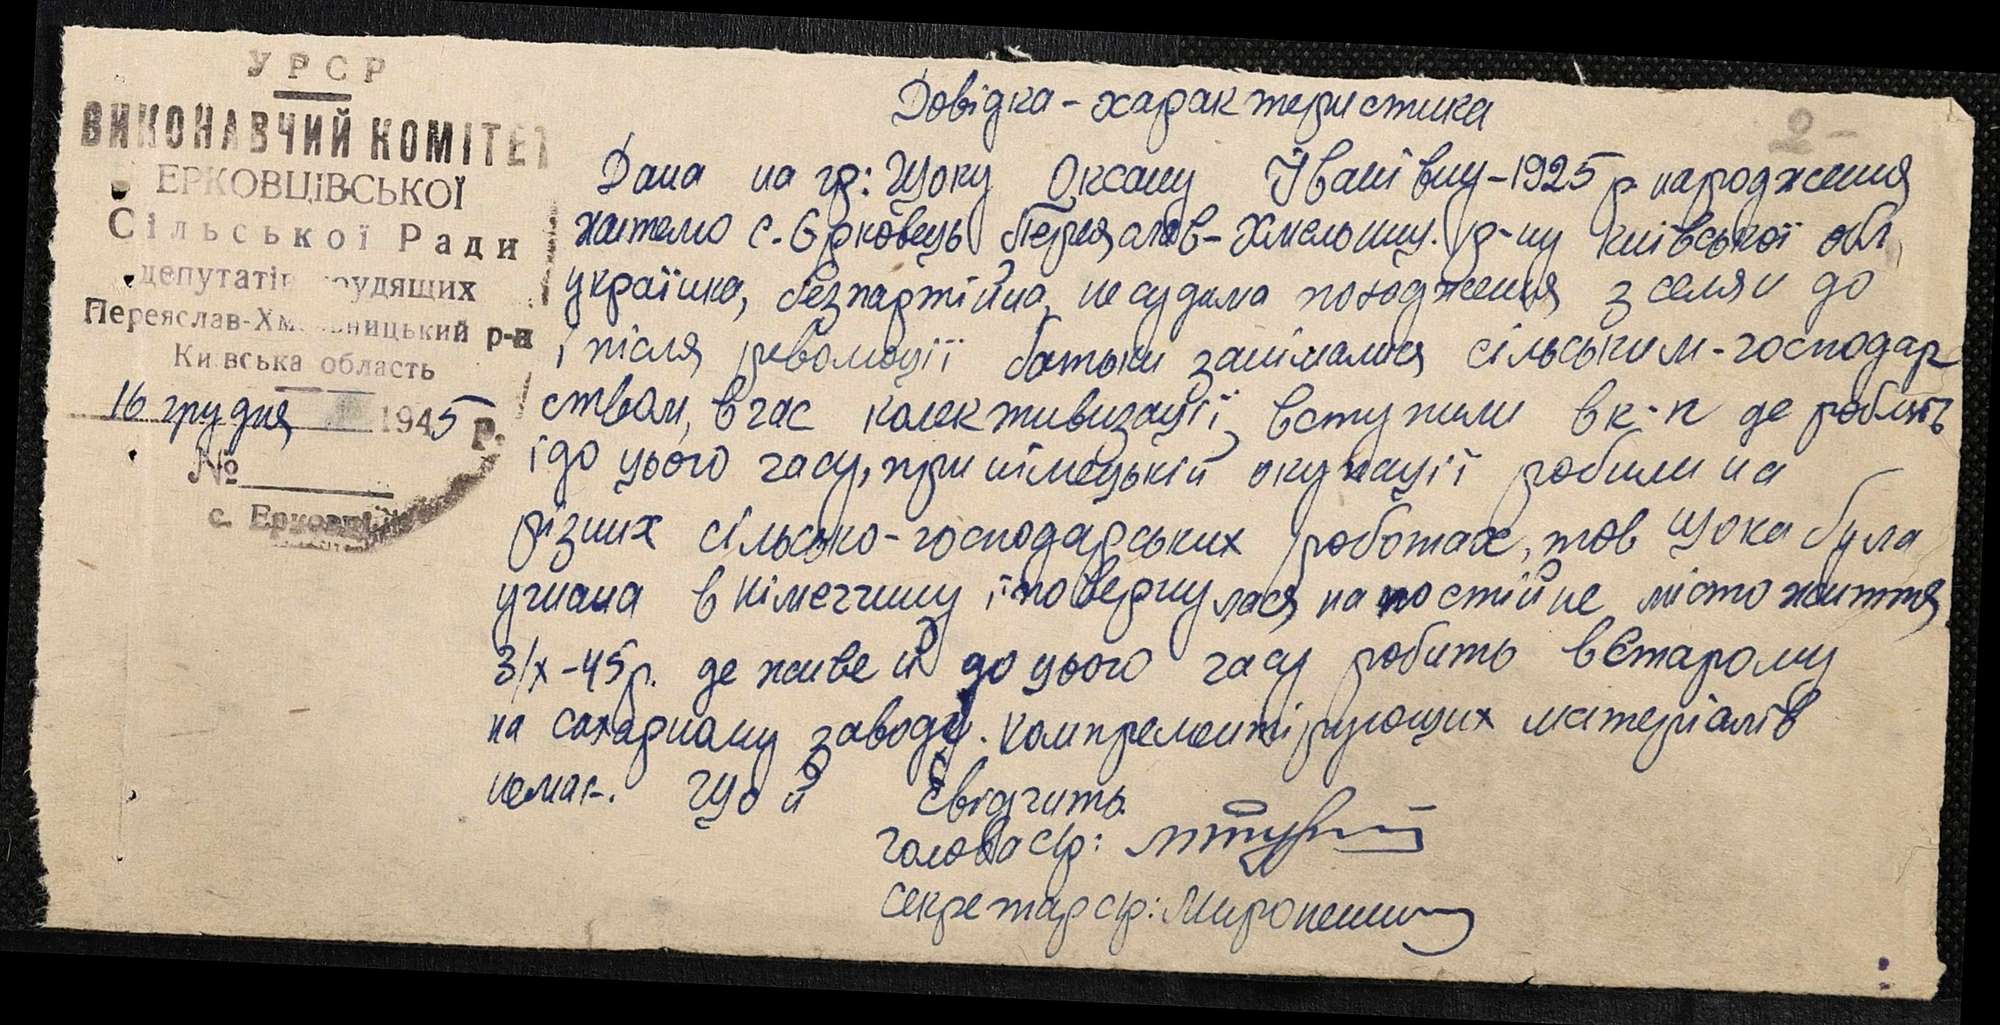 УРСР
ВИКОНАВЧИЙ КОМІТЕТ
ЕРКОВЦІВСЬКОЇ
Сільської Ради
депутатів трудящих
Переяслав-Хмельницький р-н
Київська область
16 грудня 1945 р.
№
с. Ерковці
2-
Довідка-характеристика
Дана на гр: Щоку Оксану Іванівну-1925 р. народження
жителю с. Єрковець Переяслав-Хмельниц. р-ну Київської обл,
українка, безпартійна, не судима походження з селян до
і після революції батьки занімалися сільським-господар
ством, в час колективизації, вступили в к-п де роблять
і до цього часу, при німецькій окупації робили на
різних сільсько-господарських роботах, тов Щока була
угнана в Німеччину і повернулася на постійне місто життя
3/х-45р. де живе й до цього часу робить в Старому
на сахарному заводу. Компрементірующих матеріалів
немає. Що й свідчить
голова с/р:
секретар с/р: